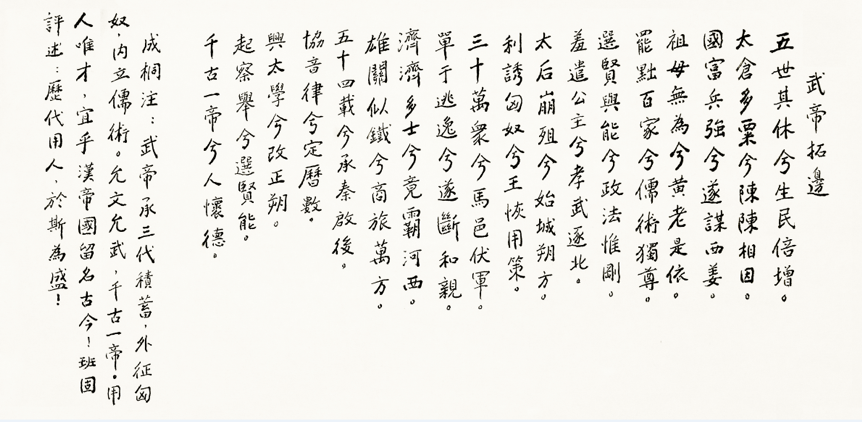 武帝拓邊
五世其休兮生民倍增。
太倉多粟兮陳陳相因。
國富兵強兮遂謀西羌。
祖母無為兮黄老是依。
罷黜百家兮儒術獨尊。
選賢與能兮政法惟剛。
羞遣公主兮孝武逐北。
太后崩殂兮始城朔方。
利誘匈奴兮王恢用策。
三十萬衆兮馬邑伏軍。
單于逃逸兮遂斷和親。
濟濟多士兮竟霸河西。
雄關似鐵兮商旅萬方。
五十四載兮承秦啟後。
協音律兮定曆數。
興太學兮改正朔。
起察舉兮選賢能。
千古一帝兮人懷德。
成桐注：武帝承三代積蓄，外征匈
奴，内立儒術。允文允武，千古一帝。用
人唯才，宜乎漢帝國留名古今！班固
評述：歷代用人，於斯為盛！